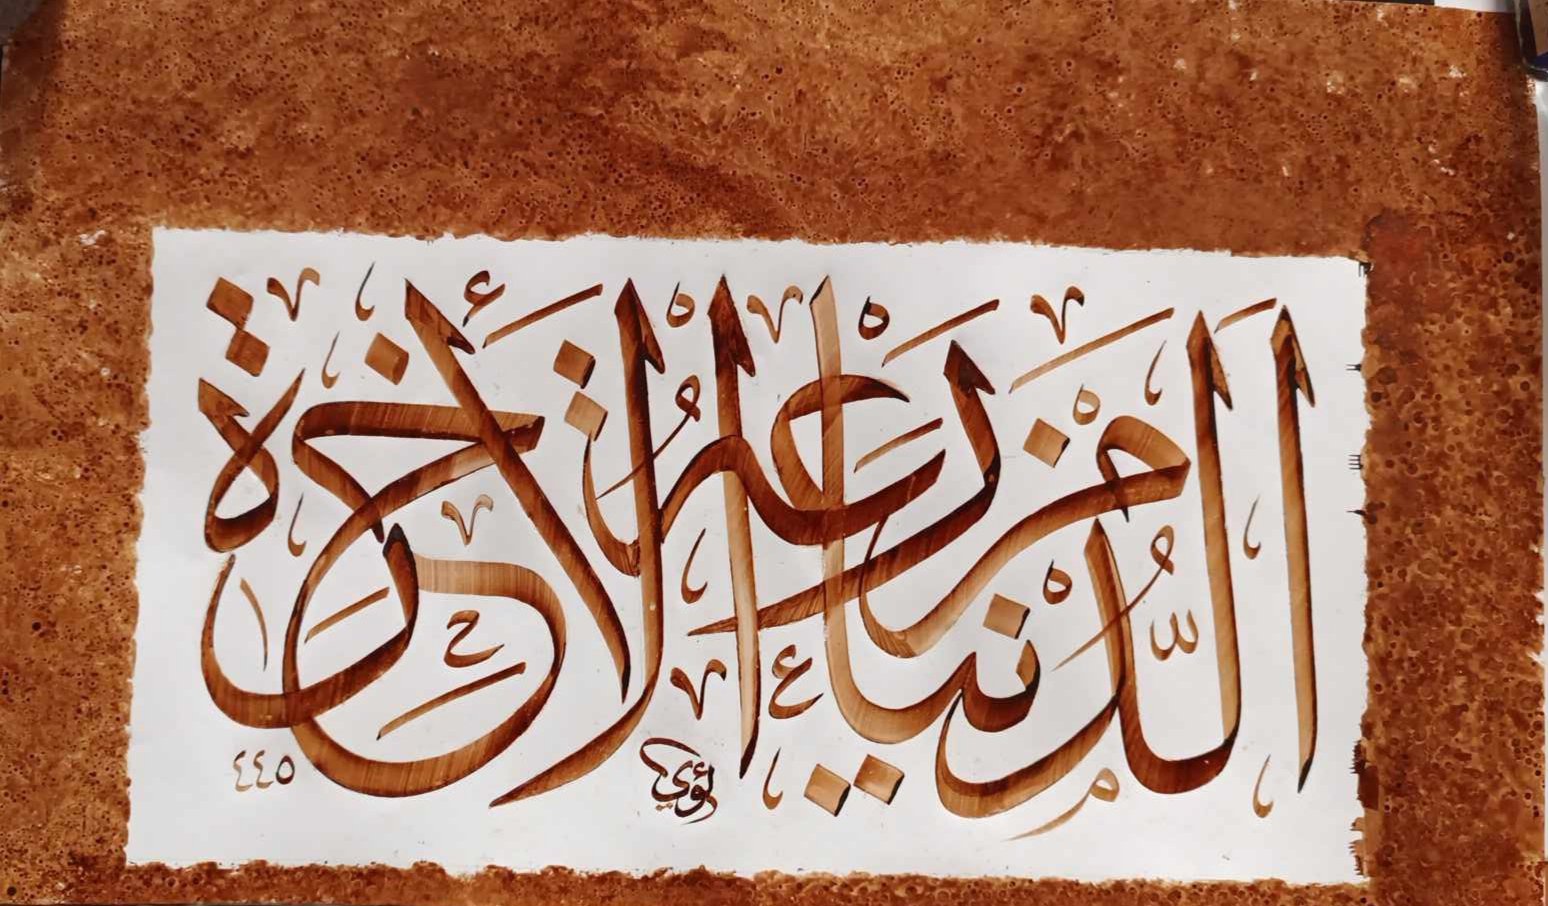 الدُّنْيَا مَزْرَعَةُ الْأَخِرَةِ
٤٤٥